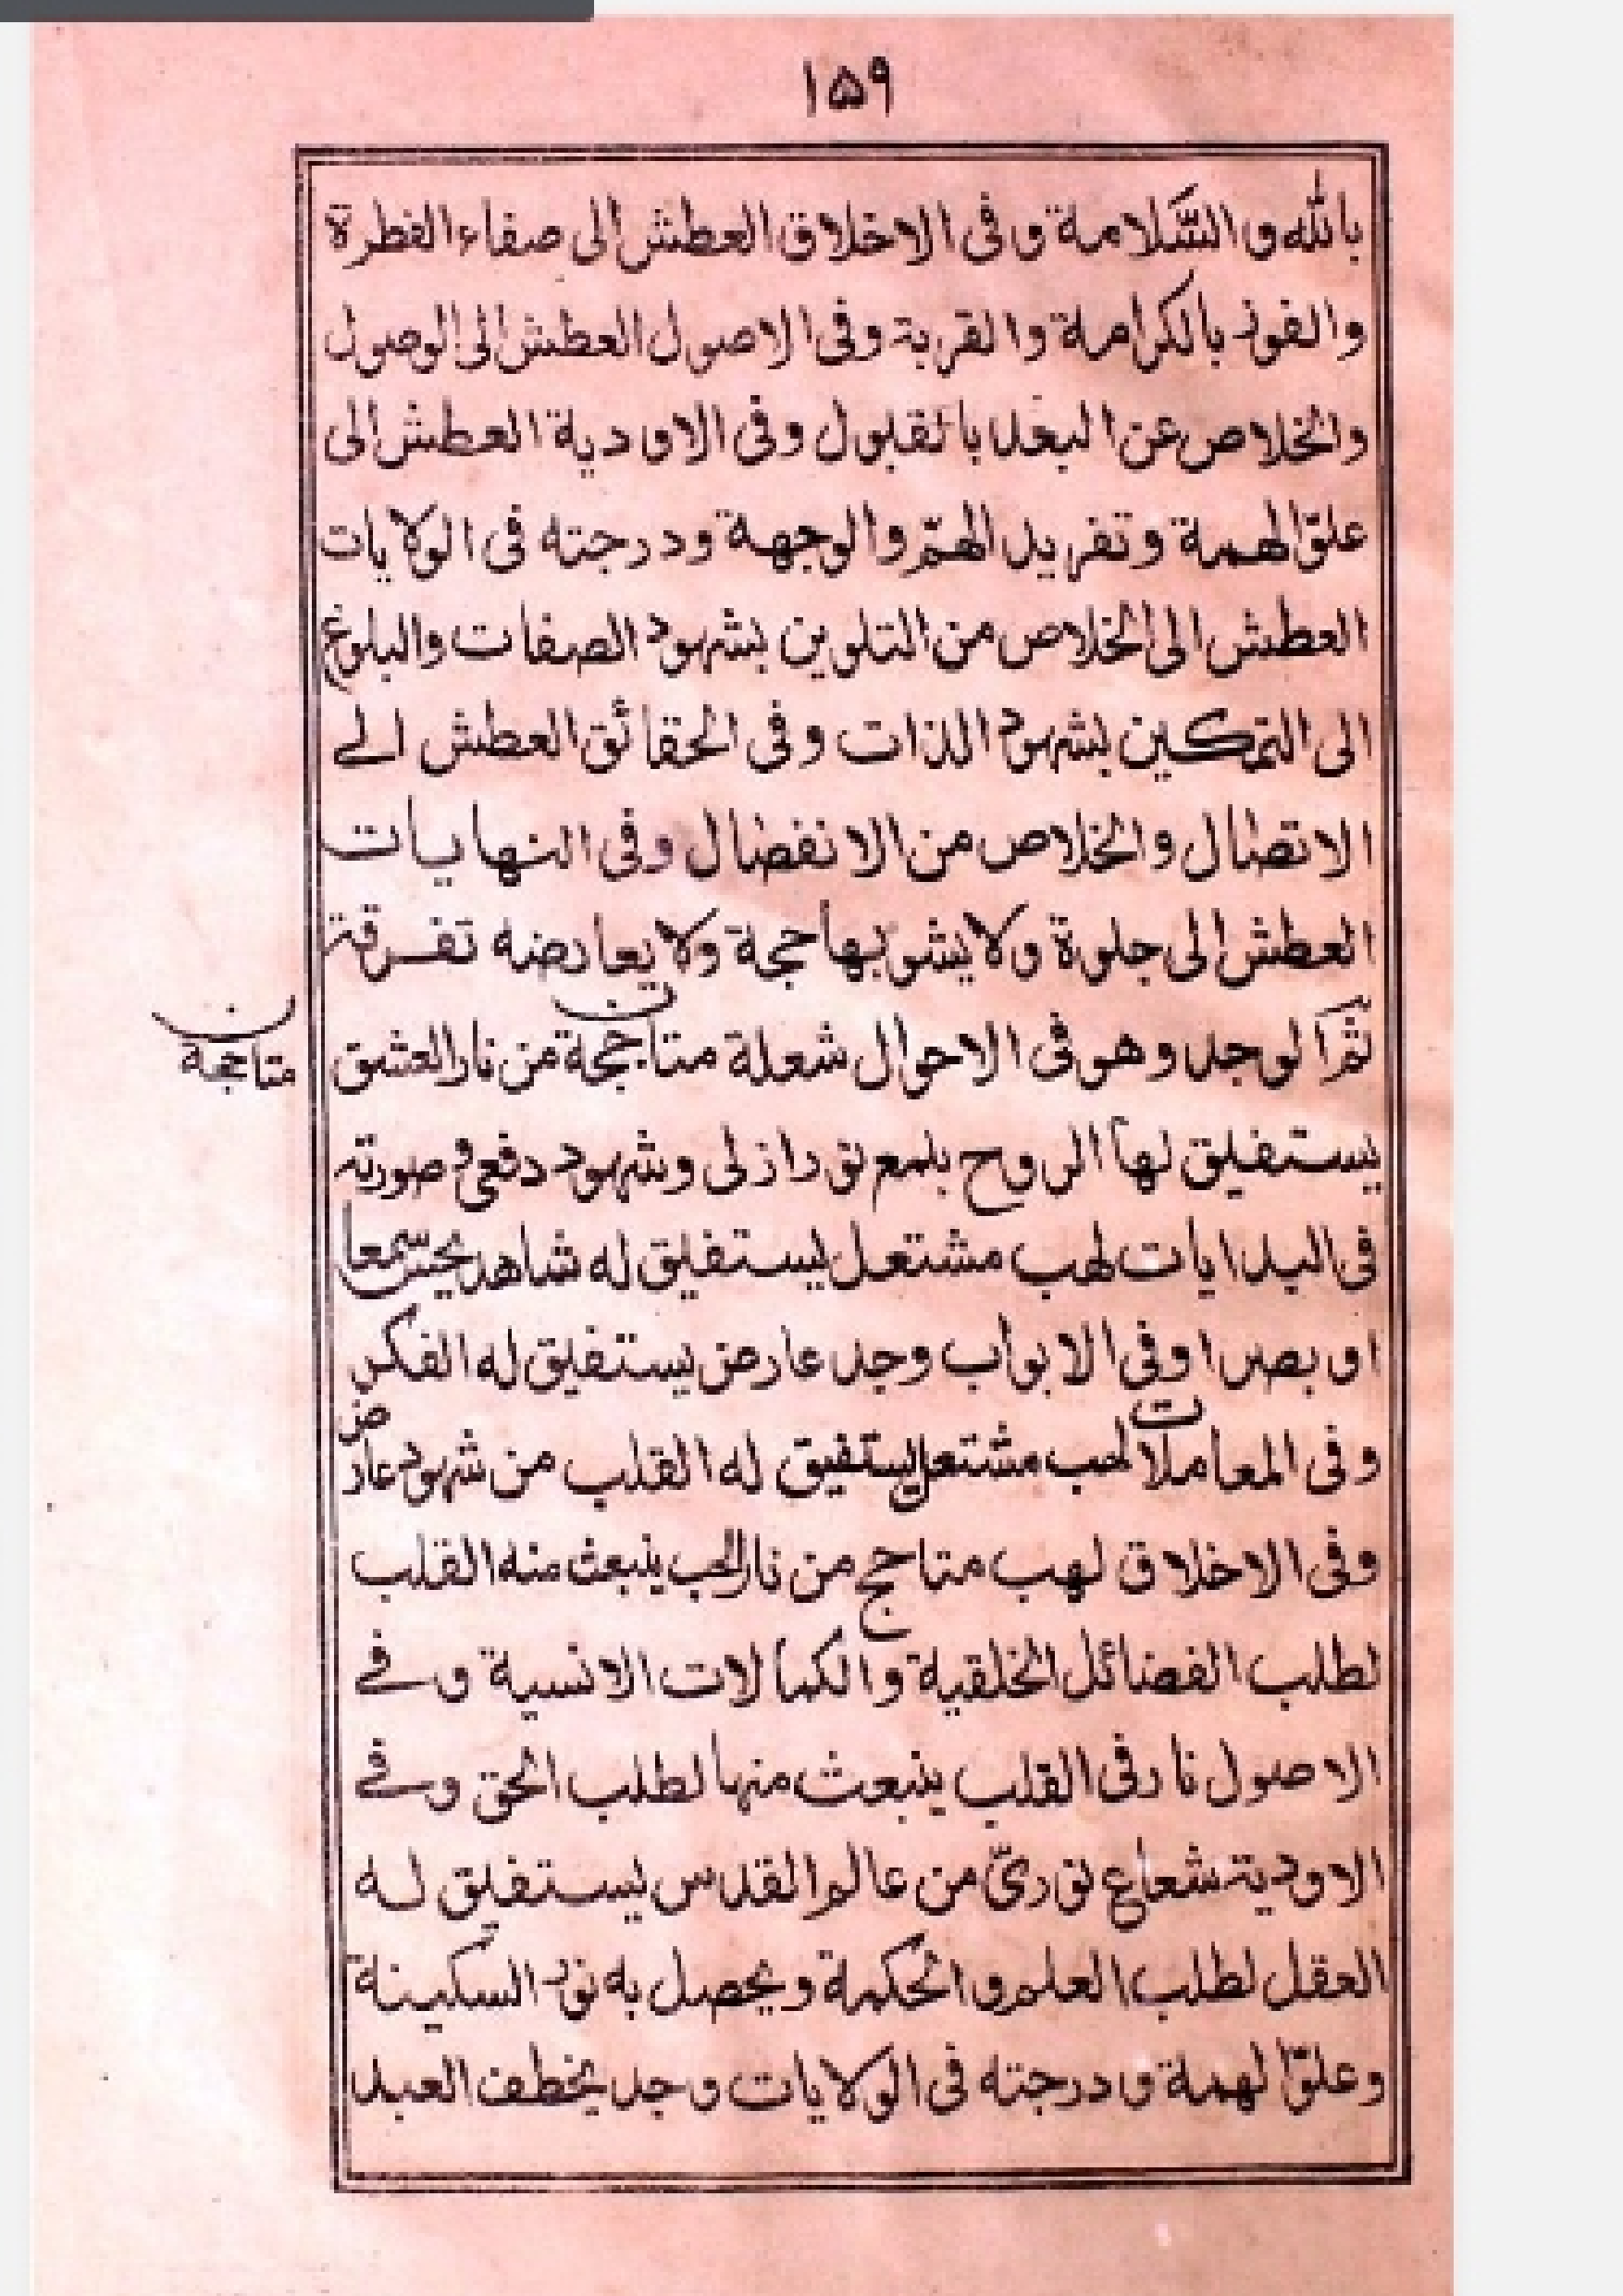 ۱۵۹
بالله و السَّلامة و فى الاخلاق العطش الى صفاء الفطرة
والفوز بالكرامة والقربة وفى الاصول العطش الى الوصول
والخلاص عن البعد بالقبول وفى الاودية العطش الى
علوّ الهمة وتفريد الهمّ والوجهة ودرجته فى الولايات
العطش الى الخلاص من التلوين بشهود الصفات والبلوغ
الى التمكين بشهود الذات وفى الحقائق العطش الے
الاتصال والخلاص من الانفصال وفى النهايات
العطش الى جلوة ولا يشوبها حجبة ولا يعارضه تفرقة
ثمّ الوجد وهو فى الاحوال شعلة متاججة من نار العشق
ن
متاججة
يستفيق لها الروح بلمع نور ازلى وشهود دفعى و صورته
فى البدايات لهب مشتعل يستفيق له شاهد يحسّ سمعا
او بصرا وفى الابواب وجد عارض يستفيق له الفكر
وفى المعاملات لهب مشتعل يستفيق له القلب من شهود عارض
وفى الاخلاق لهب متاجج من نار الحب ينبعث منه القلب
لطلب الفضائل الخلقية والكمالات الانسية وفے
الاصول نار فى القلب ينبعث منها لطلب الحق وفے
الاودية شعاع نورىّ من عالم القدس يستفيق له
العقل لطلب العلم والحكمة ويحصل به نور السكينة
وعلوّ الهمة ودرجته فى الولايات وجد يخطف العبد